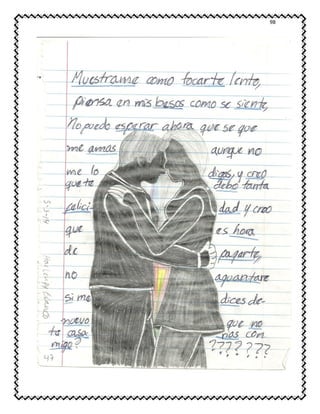 98
Muestrame como tocarte lento,
piensa en mis besos como se siente,
No puedo esperar ahora que se que
me amas aunque no
me lo digas, y creo
que te debo tanta
felici- dad y creo
que es hora
de pagarte,
no aguantare
si me dices de-
nuevo que no
te casa rias con
migo? ???????
47